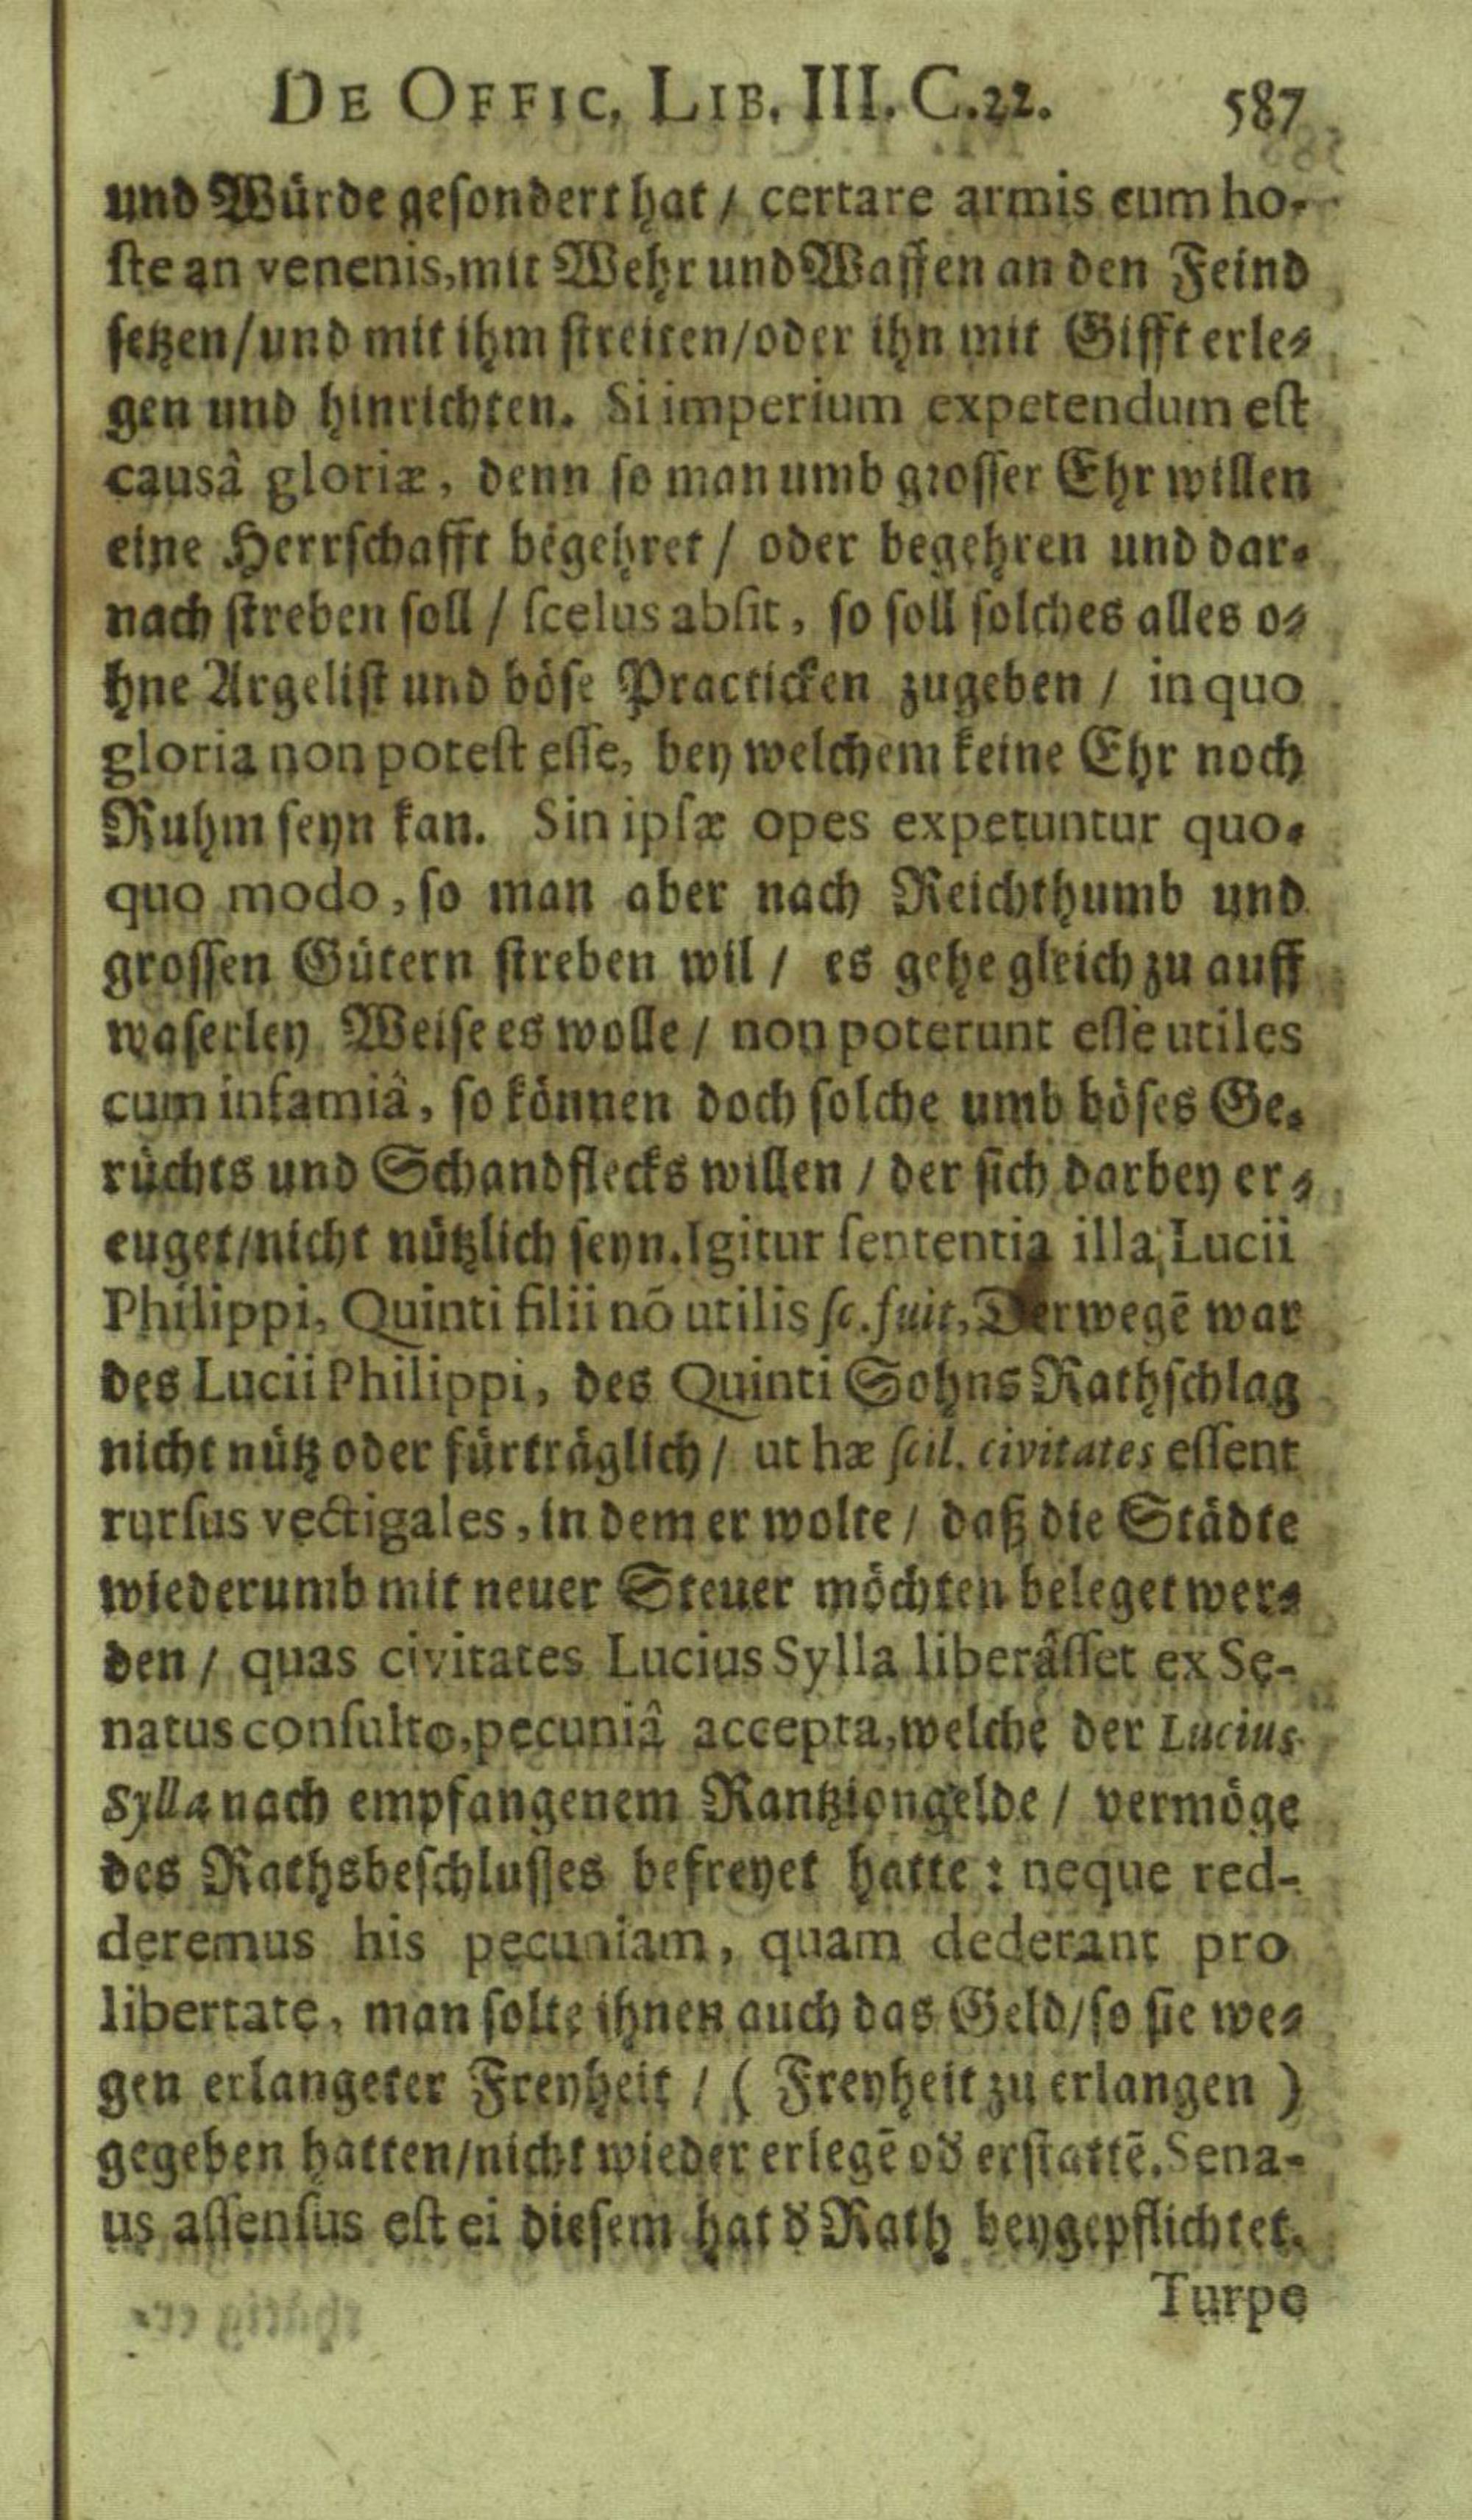 DE OFFIC. LIB. III. C.22. 587
und Würde gesondert hat / certare armis cum ho-
ste an venenis, mit Wehr und Waffen an den Feind
setzen/und mit ihm streiten/oder ihn mit Gifft erle-
gen und hinrichten. Si imperium expetendum est
causâ gloriæ, denn so man umb grosser Ehr willen
eine Herrschafft begehret / oder begehren und dar-
nach streben soll / scelus absit, so soll solches alles o-
hne Argelist und böse Practicken zugeben / in quo
gloria non potest esse, bey welchem keine Ehr noch
Ruhm seyn kan. Sin ipsæ opes expetuntur quo-
quo modo, so man aber nach Reichthumb und
grossen Gütern streben wil / es gehe gleich zu auff
waserley Weise es wolle / non poterunt esse utiles
cum infamiâ, so können doch solche umb böses Ge-
rüchts und Schandflecks willen / der sich darbey er-
euget/nicht nützlich seyn. Igitur sententia illa, Lucii
Philippi, Quinti filii nō utilis sc. fuit, Derwegē war
des Lucii Philippi, des Quinti Sohns Rathschlag
nicht nütz oder fürträglich / ut hæ scil. civitates essent
rursus vectigales, in dem er wolte / daß die Städte
wiederumb mit neuer Steuer möchten beleget wer-
den / quas civitates Lucius Sylla liberâsset ex Se-
natus consulto, pecuniâ accepta, welche der Lucius
Sylla nach empfangenem Rantziongelde / vermöge
des Rathsbeschlusses befreyet hatte : neque red-
deremus his pecuniam, quam dederant pro
libertate, man solte ihnen auch das Geld/so sie we-
gen erlangeter Freyheit / ( Freyheit zu erlangen )
gegeben hatten/nicht wieder erlegē od̕ erstattē. Sena-
us assensus est ei diesem hat d̕ Rath beygepflichtet.
Turpe